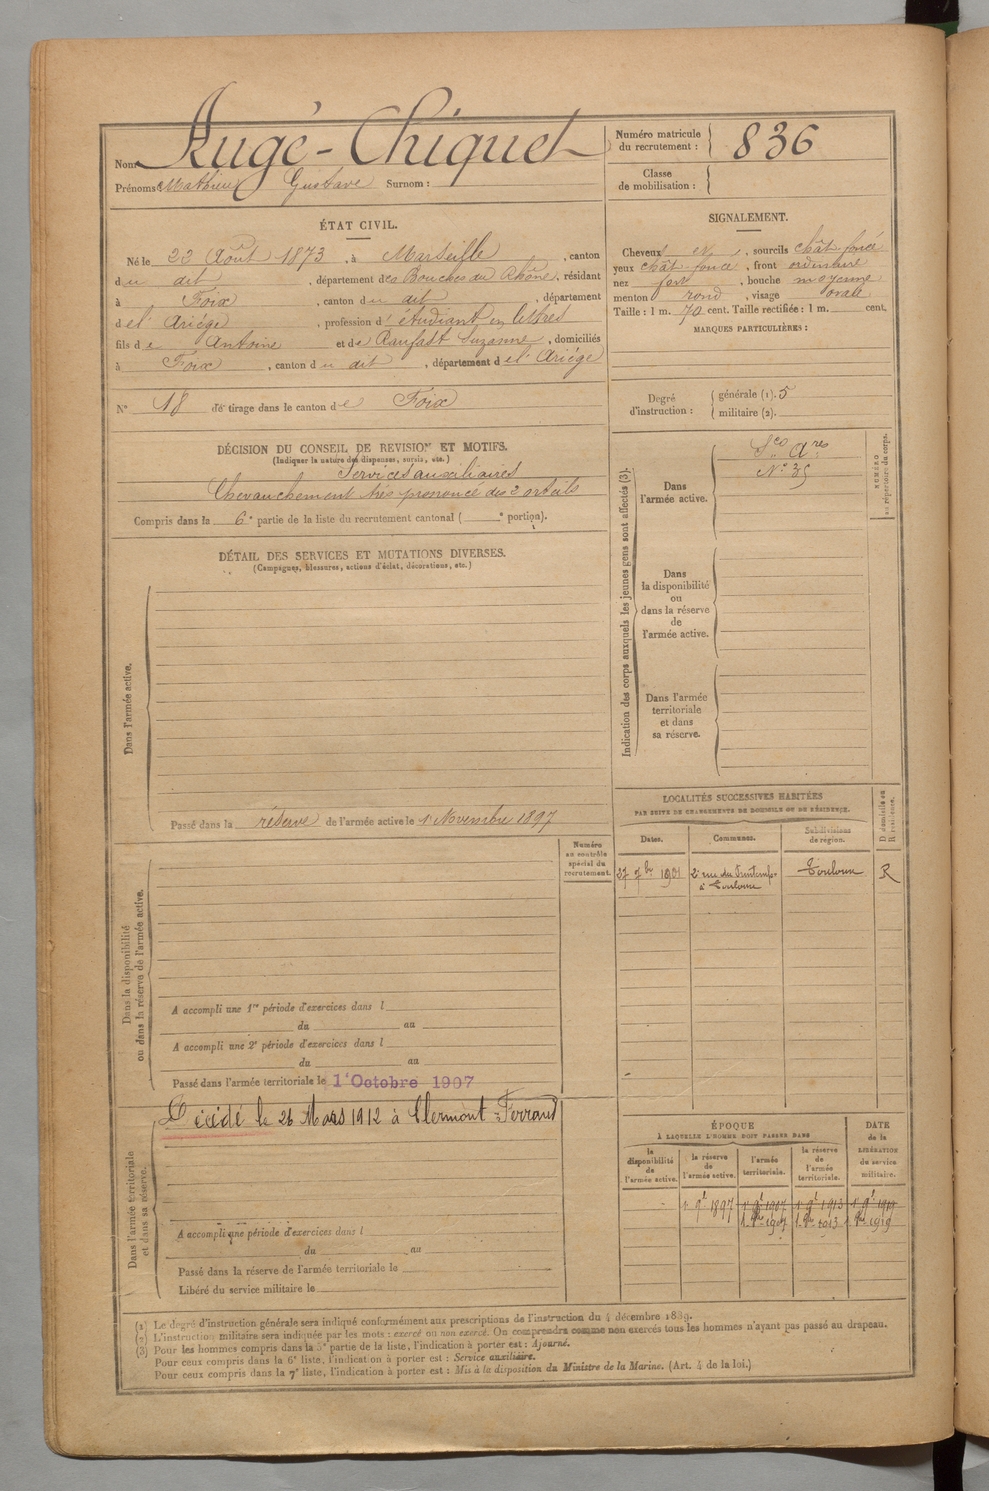 Nom Augé-Chiquet
Prénoms : Mathieu Gustave Surnom :
Numéro matricule
du recrutement : 836
Classe
de mobilisation :
ÉTAT CIVIL.
Né le 22 Août 1873, à Marseille, canton
du dit, département des Bouches du Rhône, résidant
à Foix, canton du dit, département
de l'Ariége, profession d'étudiant en lettres
fils de Antoine et de Ranfast Suzanne, domiciliés
à Foix, canton du dit, département de l'Ariége
N° 18 de tirage dans le canton de Foix
SIGNALEMENT.
Cheveux et, sourcils chât foncé
yeux chât foncé, front ordinaire
nez fort, bouche moyenne
menton rond, visage ovale
Taille : 1 m. 70 cent. Taille rectifiée : 1 m. cent.
MARQUES PARTICULIÈRES :
Degré
d'instruction :
générale (1). 5
militaire (2).
DÉCISION DU CONSEIL DE REVISION ET MOTIFS.
(Indiquer la nature des dispenses, sursis, etc.)
Services auxiliaires
Chevauchement très prononcé des 2 orteils
Compris dans la 6e partie de la liste du recrutement cantonal ( e portion).
DÉTAIL DES SERVICES ET MUTATIONS DIVERSES.
(Campagnes, blessures, actions d'éclat, décorations, etc.)
Dans l'armée active.
Passé dans la réserve de l'armée active le 1er Novembre 1897
Indication des corps auxquels les jeunes gens sont affectés (3).
Dans
l'armée active.
Sces Ares
N° 35
NUMÉRO
au répertoire du corps.
Dans
la disponibilité
ou
dans la réserve
de
l'armée active.
Dans l'armée
territoriale
et dans
sa réserve.
LOCALITÉS SUCCESSIVES HABITÉES
PAR SUITE DE CHANGEMENTS DE DOMICILE OU DE RÉSIDENCE.
D domicile ou
R résidence.
Dates. Communes. Subdivisions
de région.
27 7bre 1901 2 rue du Printemps Toulouse R
à Toulouse
Numéro
au contrôle
spécial du
recrutement.
Dans la disponibilité
ou dans la réserve de l'armée active.
A accompli une 1re période d'exercices dans l
du au
A accompli une 2e période d'exercices dans l
du au
Passé dans l'armée territoriale le 1er Octobre 1907
Dans l'armée territoriale
et dans sa réserve.
Décédé le 26 Mars 1912 à Clermont-Ferrand
A accompli une période d'exercices dans l
du au
Passé dans la réserve de l'armée territoriale le
Libéré du service militaire le
ÉPOQUE
À LAQUELLE L'HOMME DOIT PASSER DANS
DATE
de la
LIBÉRATION
du service
militaire.
la
disponibilité
de
l'armée active.
la réserve
de
l'armée active.
l'armée
territoriale.
la réserve
de
l'armée
territoriale.
1er 9bre 1897 1er 9bre 1907 1er 9bre 1913 1er 9bre 1919
1907 1913 1919
(1) Le degré d'instruction générale sera indiqué conformément aux prescriptions de l'instruction du 4 décembre 1889.
(2) L'instruction militaire sera indiquée par les mots : exercé ou non exercé. On comprendra comme non exercés tous les hommes n'ayant pas passé au drapeau.
(3) Pour les hommes compris dans la 5e partie de la liste, l'indication à porter est : Ajourné.
Pour ceux compris dans la 6e liste, l'indication à porter est : Service auxiliaire.
Pour ceux compris dans la 7e liste, l'indication à porter est : Mis à la disposition du Ministre de la Marine. (Art. 4 de la loi.)